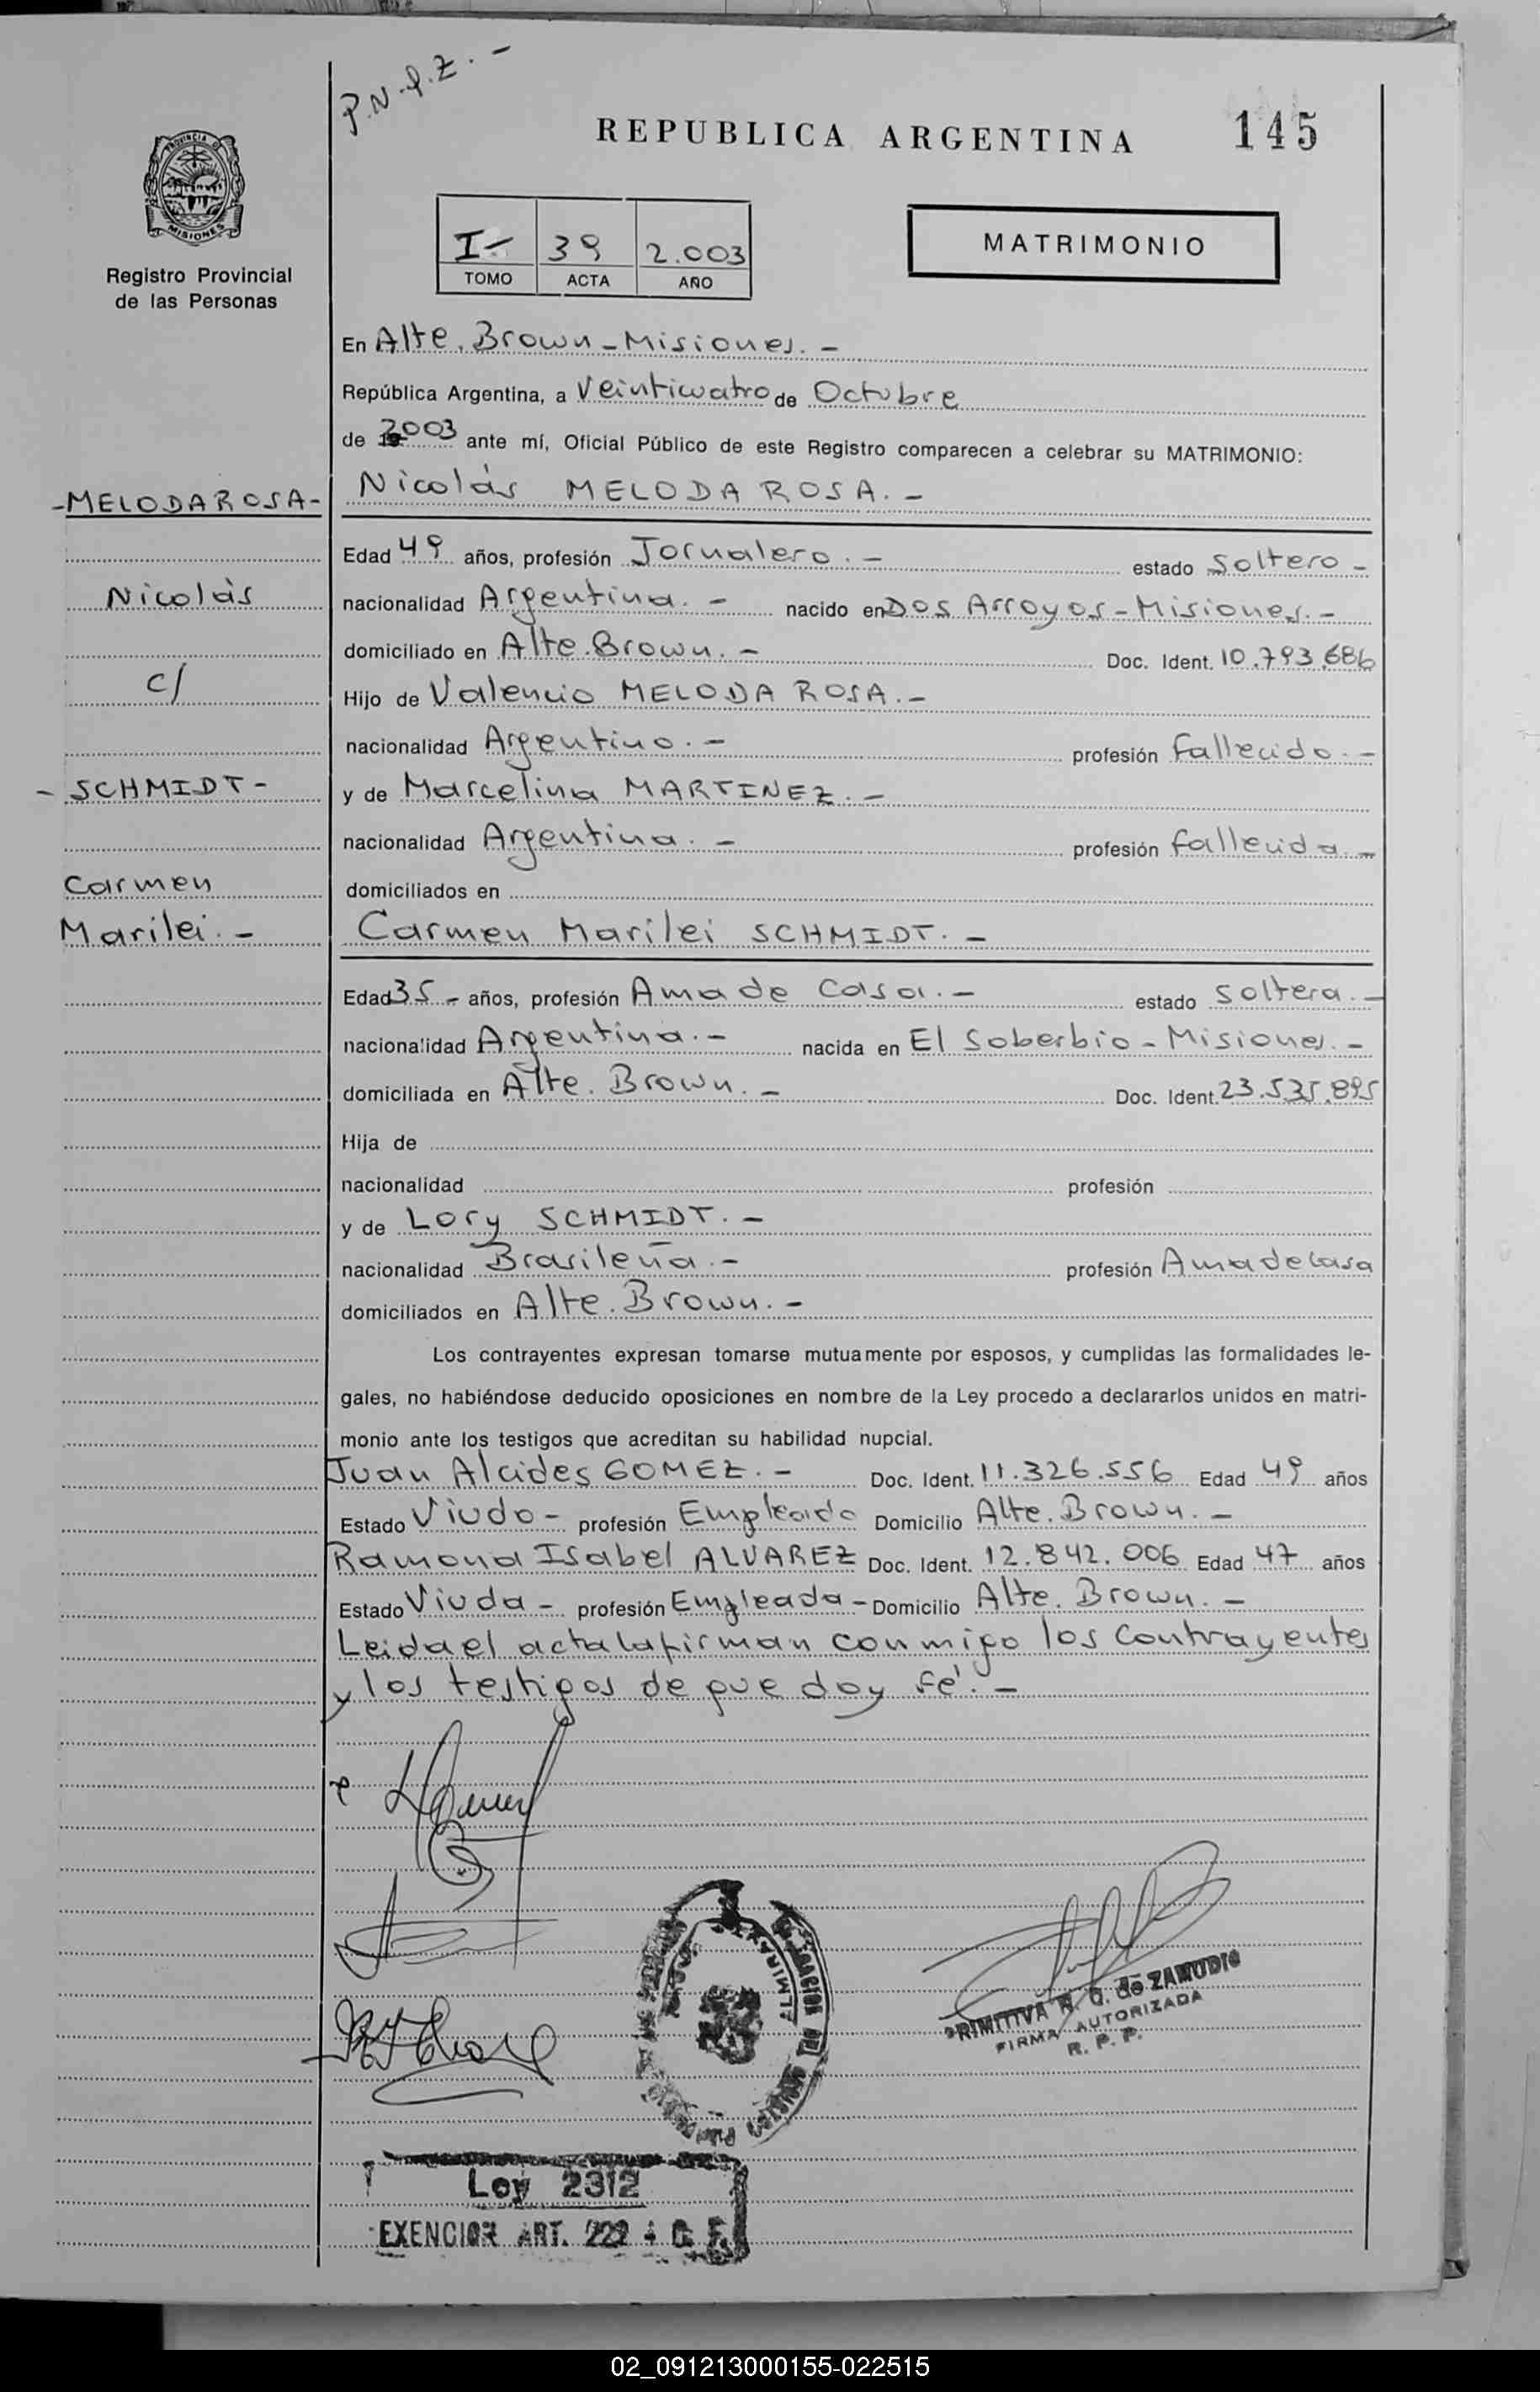 P.N.P.Z. -
REPUBLICA ARGENTINA
145
PROVINCIA DE
MISIONES
Registro Provincial
de las Personas
I- 39 2.003
TOMO ACTA AÑO
MATRIMONIO
En Alte. Brown - Misiones. -
República Argentina, a Veinticuatro de Octubre
de 2003 ante mí, Oficial Público de este Registro comparecen a celebrar su MATRIMONIO:
- MELODAROSA -
Nicolás MELODA ROSA. -
Edad 49 años, profesión Jornalero. - estado Soltero -
Nicolás
nacionalidad Argentina. - nacido en Dos Arroyos - Misiones. -
domiciliado en Alte. Brown. - Doc. Ident. 10.793.686
c/
Hijo de Valencio MELODA ROSA. -
nacionalidad Argentino. - profesión Fallecido. -
- SCHMIDT -
y de Marcelina MARTINEZ. -
nacionalidad Argentina. - profesión Fallecida -
Carmen
domiciliados en
Marilei. -
Carmen Marilei SCHMIDT. -
Edad 35 - años, profesión Ama de Casa. - estado Soltera. -
nacionalidad Argentina. - nacida en El Soberbio - Misiones. -
domiciliada en Alte. Brown. - Doc. Ident. 23.535.895
Hija de
nacionalidad profesión
y de Lory SCHMIDT. -
nacionalidad Brasileña. - profesión Ama de Casa
domiciliados en Alte. Brown. -
Los contrayentes expresan tomarse mutuamente por esposos, y cumplidas las formalidades le-
gales, no habiéndose deducido oposiciones en nombre de la Ley procedo a declararlos unidos en matri-
monio ante los testigos que acreditan su habilidad nupcial.
Juan Alcides GOMEZ. - Doc. Ident. 11.326.556 Edad 49 años
Estado Viudo - profesión Empleado Domicilio Alte. Brown. -
Ramona Isabel ALVAREZ Doc. Ident. 12.842.006 Edad 47 años
Estado Viuda - profesión Empleada - Domicilio Alte. Brown. -
Leida el acta la firman conmigo los contrayentes
y los testigos de que doy fé. -
PRIMITIVA R. G. de ZAMUDIO
FIRMA AUTORIZADA
R. P. P.
Ley 2312
EXENCION ART. 222
02_091213000155-022515